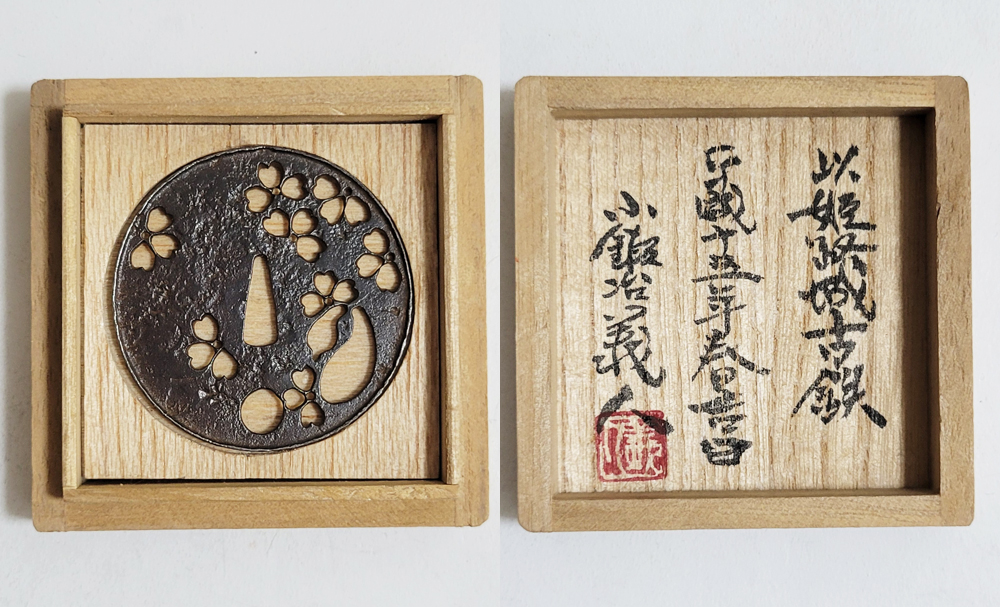 以姫路城古鉄
平成十五年春吉日
小鍛冶義人